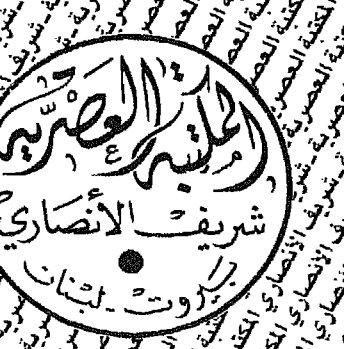 المكتبة العصرية
شريف الأنصاري
بيروت - لبنان